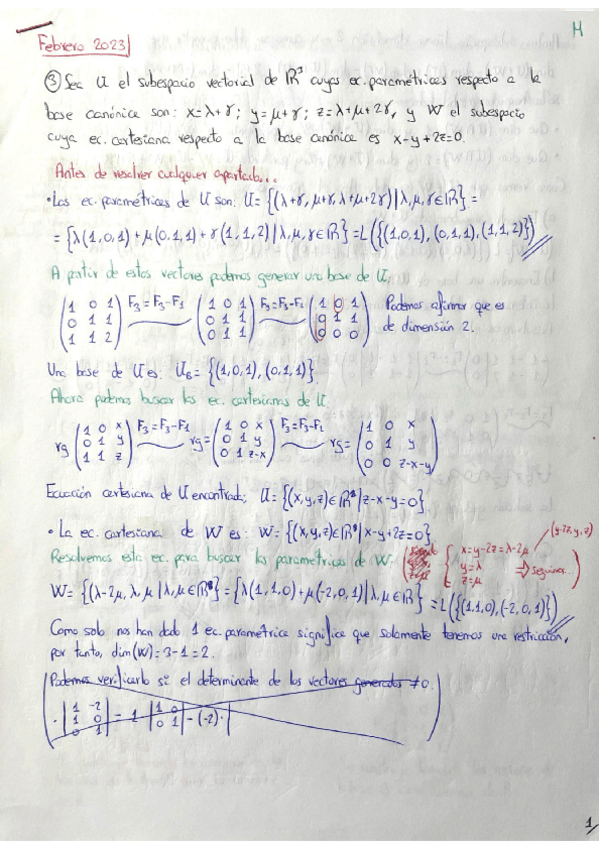 H
Febrero 2023
③ Sea U el subespacio vectorial de ℝ³ cuyas ec. paramétricas respecto a la
base canónica son: x=λ+γ; y=μ+γ; z=λ+μ+2γ, y W el subespacio
cuya ec. cartesiana respecto a la base canónica es x-y+2z=0.
Antes de resolver cualquier apartado...
• Las ec. paramétricas de U son: U={(λ+γ, μ+γ, λ+μ+2γ) | λ, μ, γ ∈ ℝ} =
= {λ(1,0,1)+μ(0,1,1)+γ(1,1,2) | λ, μ, γ ∈ ℝ} = L({(1,0,1), (0,1,1), (1,1,2)})
A partir de estos vectores podemos generar una base de U.
(1 0 1; 0 1 1; 1 1 2) F₃=F₃-F₁ (1 0 1; 0 1 1; 0 1 1) F₃=F₃-F₂ (1 0 1; 0 1 1; 0 0 0) Podemos afirmar que es
de dimensión 2.
Una base de U es: U_B = {(1,0,1), (0,1,1)}.
Ahora podemos buscar las ec. cartesianas de U.
rg (1 0 x; 0 1 y; 1 1 z) F₃=F₃-F₁ rg= (1 0 x; 0 1 y; 0 1 z-x) F₃=F₃-F₂ rg= (1 0 x; 0 1 y; 0 0 z-x-y)
Ecuación cartesiana de U encontrada; U={(x,y,z)∈ℝ³ | z-x-y=0}
• La ec. cartesiana de W es: W={(x,y,z)∈ℝ³ | x-y+2z=0}
(y-2z, y, z)
Resolvemos esta ec. para buscar las paramétricas de W. { x=y-2z=λ-2μ
y=λ
z=μ ⇒ Seguimos...)
W= {(λ-2μ, λ, μ | λ, μ ∈ ℝ³} = {λ(1,1,0)+μ(-2,0,1) | λ, μ ∈ ℝ} = L({(1,1,0), (-2,0,1)})
Como solo nos han dado 1 ec. paramétrica significa que solamente tenemos una restricción,
por tanto, dim(W)=3-1=2.
Podemos verificarlo si el determinante de los vectores generados ≠0.
· |1 -2; 1 0; 0 1| = 1 |1 0; 0 1| - (-2) · |
1